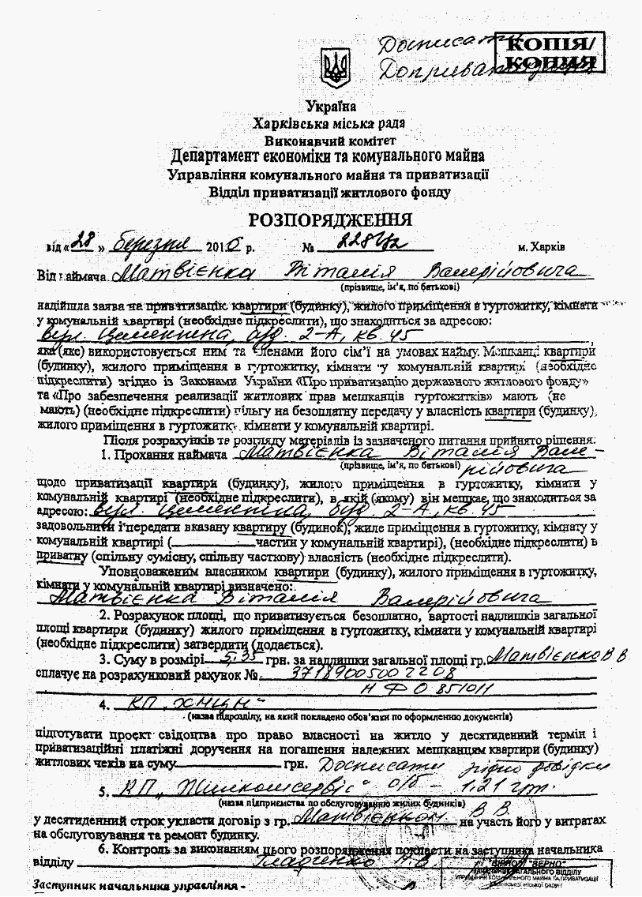 Дописати КОПІЯ/
КОПИЯ
Україна
Харківська міська рада
Виконавчий комітет
Департамент економіки та комунального майна
Управління комунального майна та приватизації
Відділ приватизації житлового фонду
РОЗПОРЯДЖЕННЯ
від « 28 » березня 2010 р. № м. Харків
Від наймача Матвієнка Віталія Валерійовича
(прізвище, ім'я, по батькові)
надійшла заява на приватизацію квартири (будинку), жилого приміщення в гуртожитку, кімнати
у комунальній квартирі (необхідне підкреслити), що знаходиться за адресою:
2-А, кв. 45
яка (яке) використовується ним та членами його сім'ї на умовах найму. Мешканці квартири
(будинку), жилого приміщення в гуртожитку, кімнати у комунальній квартирі (необхідне
підкреслити) згідно із Законами України «Про приватизацію державного житлового фонду»
та «Про забезпечення реалізації житлових прав мешканців гуртожитків» мають (не
мають) (необхідне підкреслити) пільгу на безоплатну передачу у власність квартири (будинку),
жилого приміщення в гуртожитку, кімнати у комунальній квартирі.
Після розрахунків та розгляду матеріалів із зазначеного питання прийнято рішення:
1. Прохання наймача Матвієнка Віталія Вале-
(прізвище, ім'я, по батькові) рійовича
щодо приватизації квартири (будинку), жилого приміщення в гуртожитку, кімнати у
комунальній квартирі (необхідне підкреслити), в якій (якому) він мешкає, що знаходиться за
адресою: 2-А, кв. 45
задовольнити і передати вказану квартиру (будинок), жиле приміщення в гуртожитку, кімнату у
комунальній квартирі (________ частин у комунальній квартирі), (необхідне підкреслити) в
приватну (спільну сумісну, спільну часткову) власність (необхідне підкреслити).
Уповноваженим власником квартири (будинку), жилого приміщення в гуртожитку,
кімнати у комунальній квартирі визначено:
Матвієнка Віталія Валерійовича
2. Розрахунок площі, що приватизується безоплатно, вартості надлишків загальної
площі квартири (будинку) жилого приміщення в гуртожитку, кімнати у комунальній квартирі
(необхідне підкреслити) затвердити (додається).
3. Суму в розмірі грн. за надлишки загальної площі гр. Матвієнко В В
сплачує на розрахунковий рахунок № 37189005002208
МФО 851011
4. КП
(назва підрозділу, на який покладено обов'язки по оформленню документів)
підготувати проєкт свідоцтва про право власності на житло у десятиденний термін і
приватизаційні платіжні доручення на погашення належних мешканцям квартири (будинку)
житлових чеків на суму грн. Дописати згідно довідки
5. КП "Жилкомсервіс" о/б 1.21 грн.
(назва підприємства по обслуговуванню жилих будинків)
у десятиденний строк укласти договір з гр. Матвієнком В В на участь його у витратах
на обслуговування та ремонт будинку.
6. Контроль за виконанням цього розпорядження покласти на заступника начальника
відділу
Заступник начальника управління -